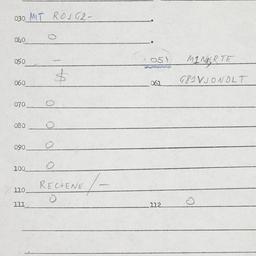 030 MT ROJG2-
040 O
050 - 051 M1NHRTE
060 $ 061 G81VJONDLT
070 O
080 O
090 O
100 O
110 RECHENE/-
111 O 112 O